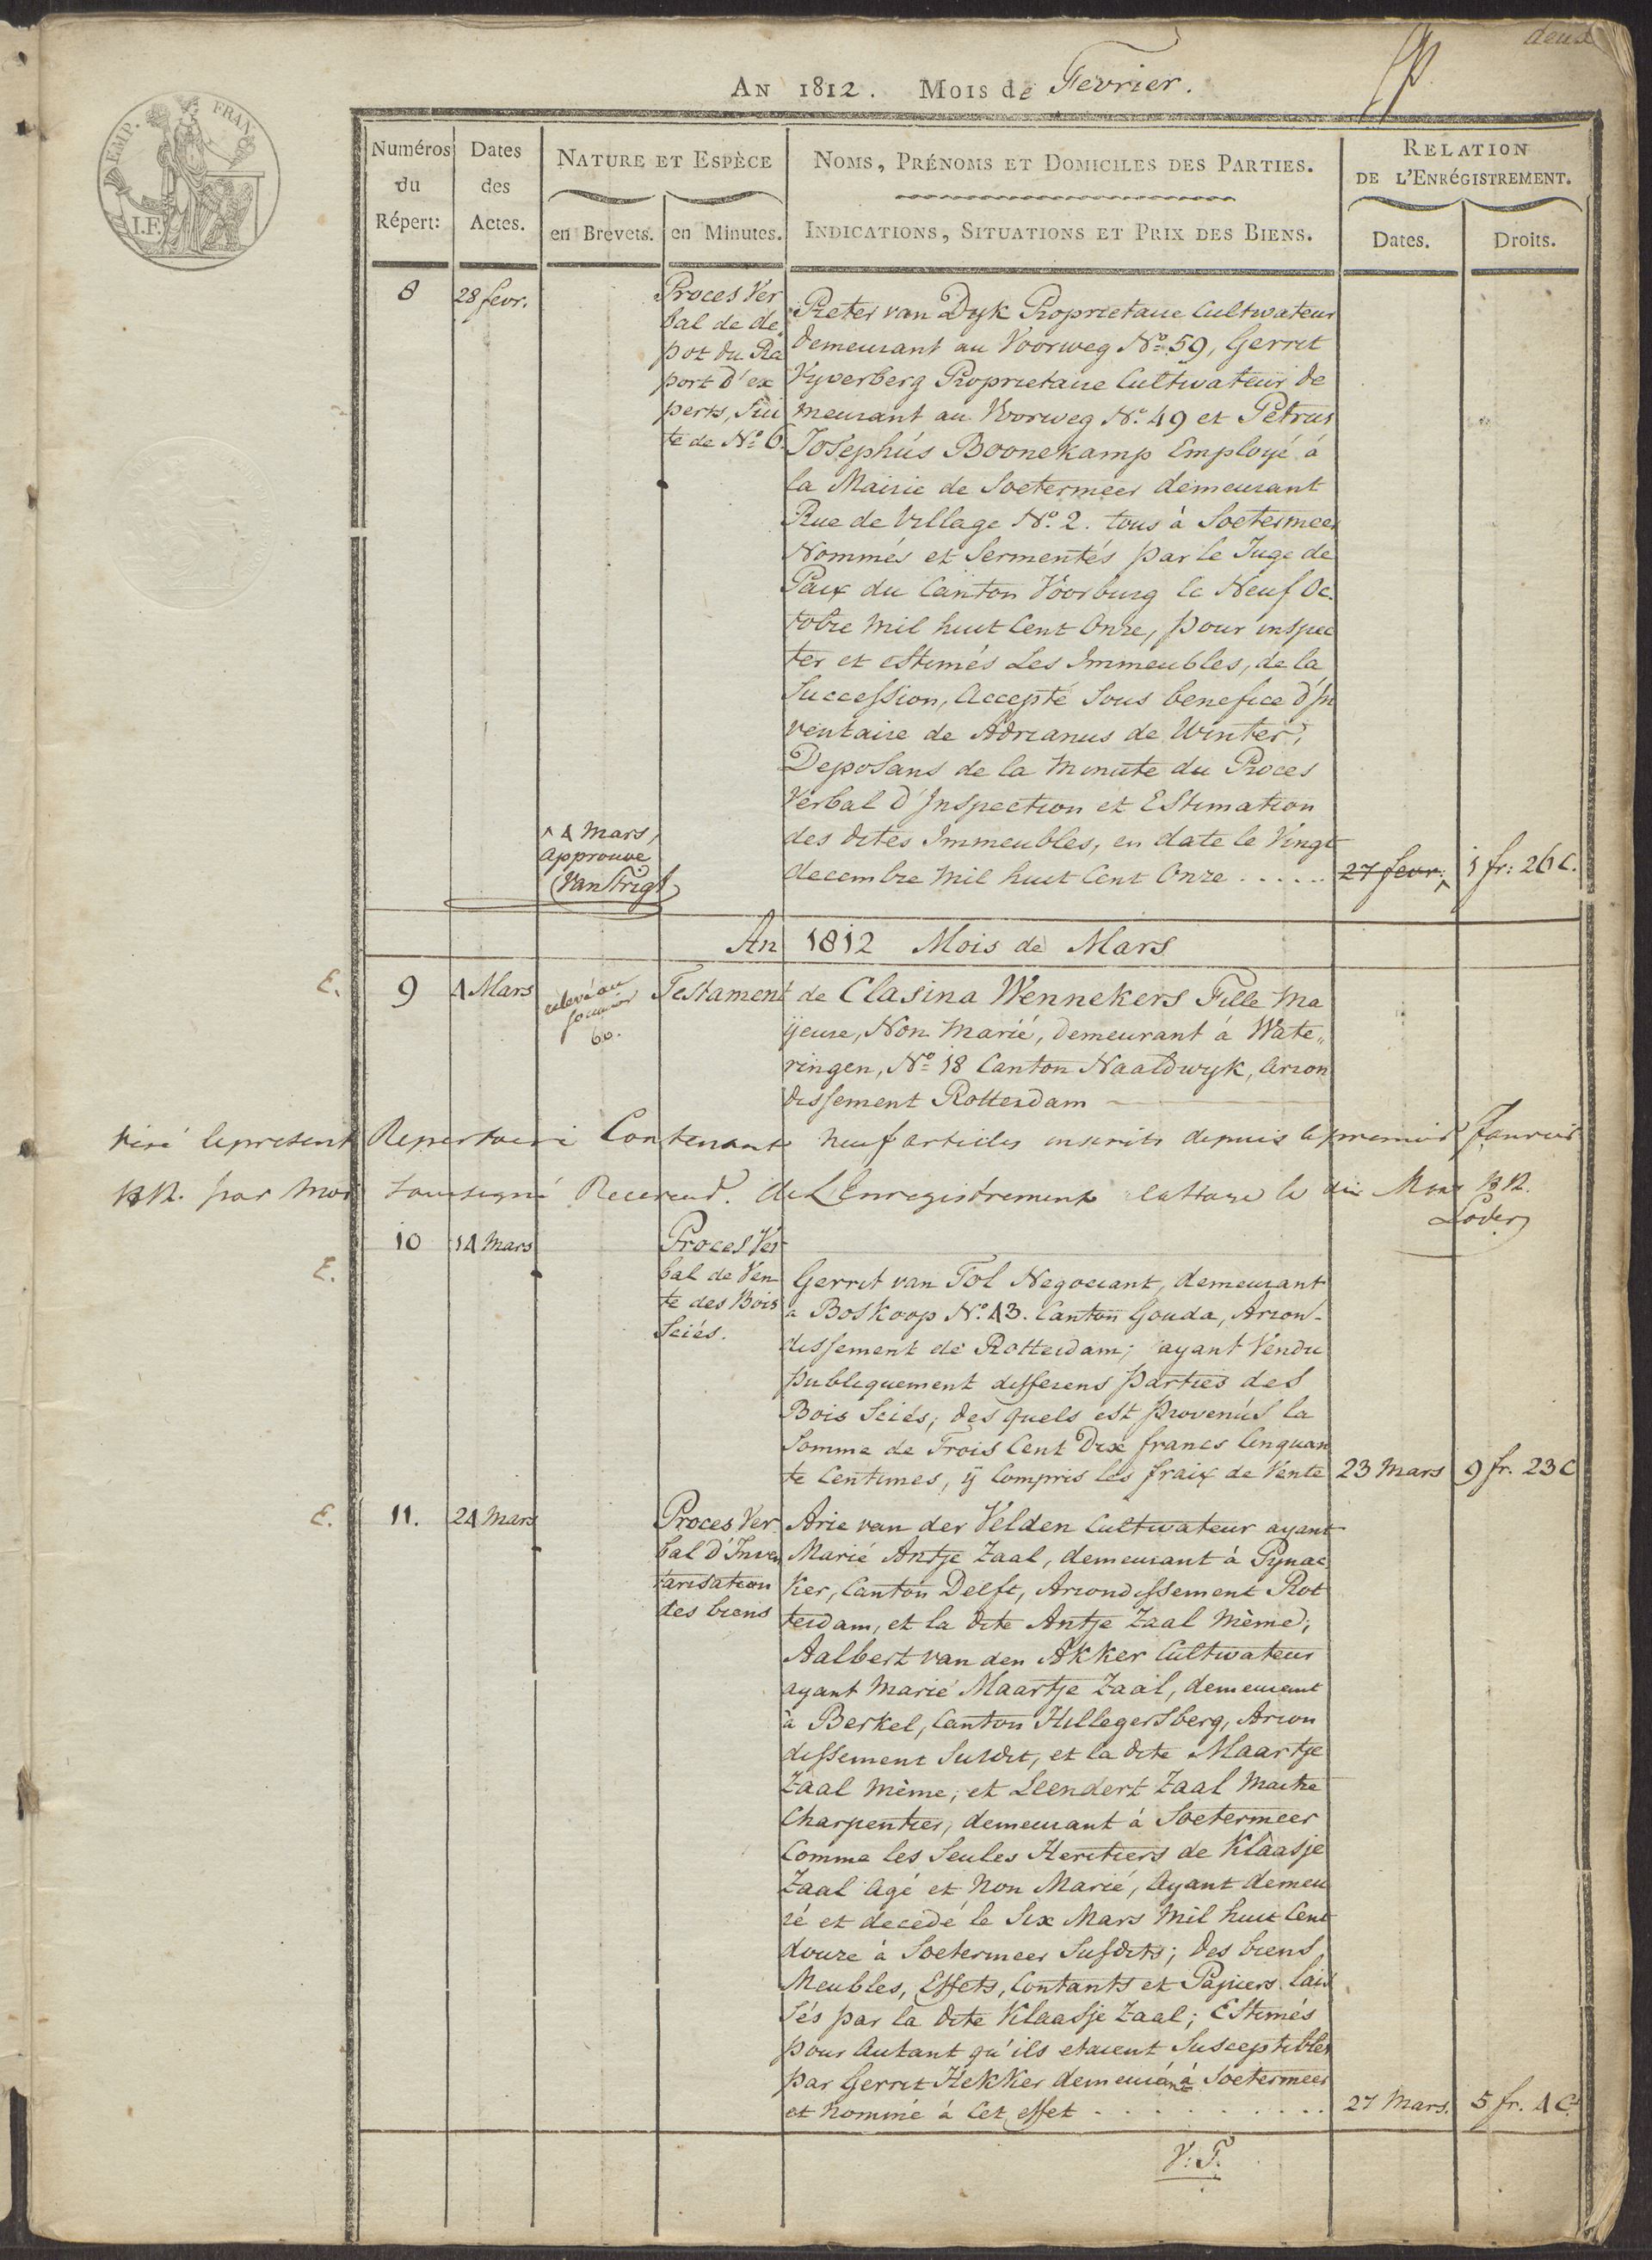 deux
AN 1812. MOIS de Fevrier.
EMP. FRAN.
I.F.
Numéros du Répert:
Dates des Actes.
NATURE ET ESPÈCE
en Brevets.
en Minutes.
NOMS, PRÉNOMS ET DOMICILES DES PARTIES.
INDICATIONS, SITUATIONS ET PRIX DES BIENS.
RELATION
DE L'ENRÉGISTREMENT.
Dates.
Droits.
8
28 fevr.
Proces Ver
bal de de
pot du Ra
port d'ex
perts, Sui
te de No. 6.
Pieter van Dyk Proprietaire Cultivateur
demeurant au Voorweg No. 59, Gerrit
Vyverberg Proprietaire Cultivateur de
meurant au Voorweg No. 49 et Petrus
Josephús Boonekamp Employé á
la Mairie de Soetermeer demeurant
Rue de Village No. 2. tous à Soetermeer
Nommés et Sermentés par le Juge de
Paix du Canton Voorburg le Neuf Oc.
tobre Mil huit Cent Onze, pour inspec
ter et estimés Les Immeubles, de la
Succession, Accepté Sous benefice d'In
ventaire de Adrianus de Winter,
Deposans de la Minute du Proces
Verbal d'Inspection et Estimation
des dites Immeubles, en date le Vingt
decembre Mil huit Cent Onze . . . . .
27 fevr. ^
1 fr: 26 C.
^ 4 Mars,
approuve
Van Frigt
An 1812 Mois de Mars
E.
9
4 Mars
relevé au
60.
Testament
de Clasina Wennekers Fille Ma
ijeure, Non Marié, demeurant á Wate„
ringen, No. 18 Canton Naaldwyk, Arron
dissement Rotterdam
Visé le present Repertoire Contenant neuf articles inscrits depuis le premier Janvier
1812. par moi soussigné Receveur de L'Enregistrement le dix Mars 1812.
Loder
E.
10
14 Mars
Proces Ver
bal de Ven
te des Bois
Sciés.
Gerrit van Tol Negociant, demeurant
a Boskoop No. 43. Canton Gouda, Arron-
dissement de Rotterdam; ayant Vendu
publiquement differens parties des
Bois Sciés, des quels est provenús la
Somme de Trois Cent Dix francs Cinquan
te Centimes, ÿ Compris les fraix de Vente
23 Mars
9 fr. 23 C
E.
11.
24 Mars
Proces Ver
bal d'Inven
tarisation
des biens
Arie van der Velden Cultivateur ayant
Marié Antje Zaal, demeurant à Pynac
ker, Canton Delft, Arrondissement Rot
terdam, et la dite Antje Zaal Mème,
Aalbert van den Akker Cultivateur
ayant Marié Maartje Zaal, demeurant
à Berkel, Canton Hillegersberg, Arron
dissement Susdit, et la dite Maartje
Zaal Mème, et Leendert Zaal Maitre
Charpentier, demeurant á Soetermeer
Comme les Seules Heritiers de Klaasje
Zaal Agé et Non Marié, Ayant demeu
ré et decedé le Six Mars Mil huit Cent
douze à Soetermeer Susdits; des biens
Meubles, Effets, Contants et Papiers lais
sés par la dite Klaasje Zaal; Estimés
pour Autant qu'ils etaient Susceptibles
par Gerrit Hekker demeurant á Soetermeer
et Nommé á Cet effet . . . . . . . . .
27 Mars.
5 fr. 4 C.
V: F.